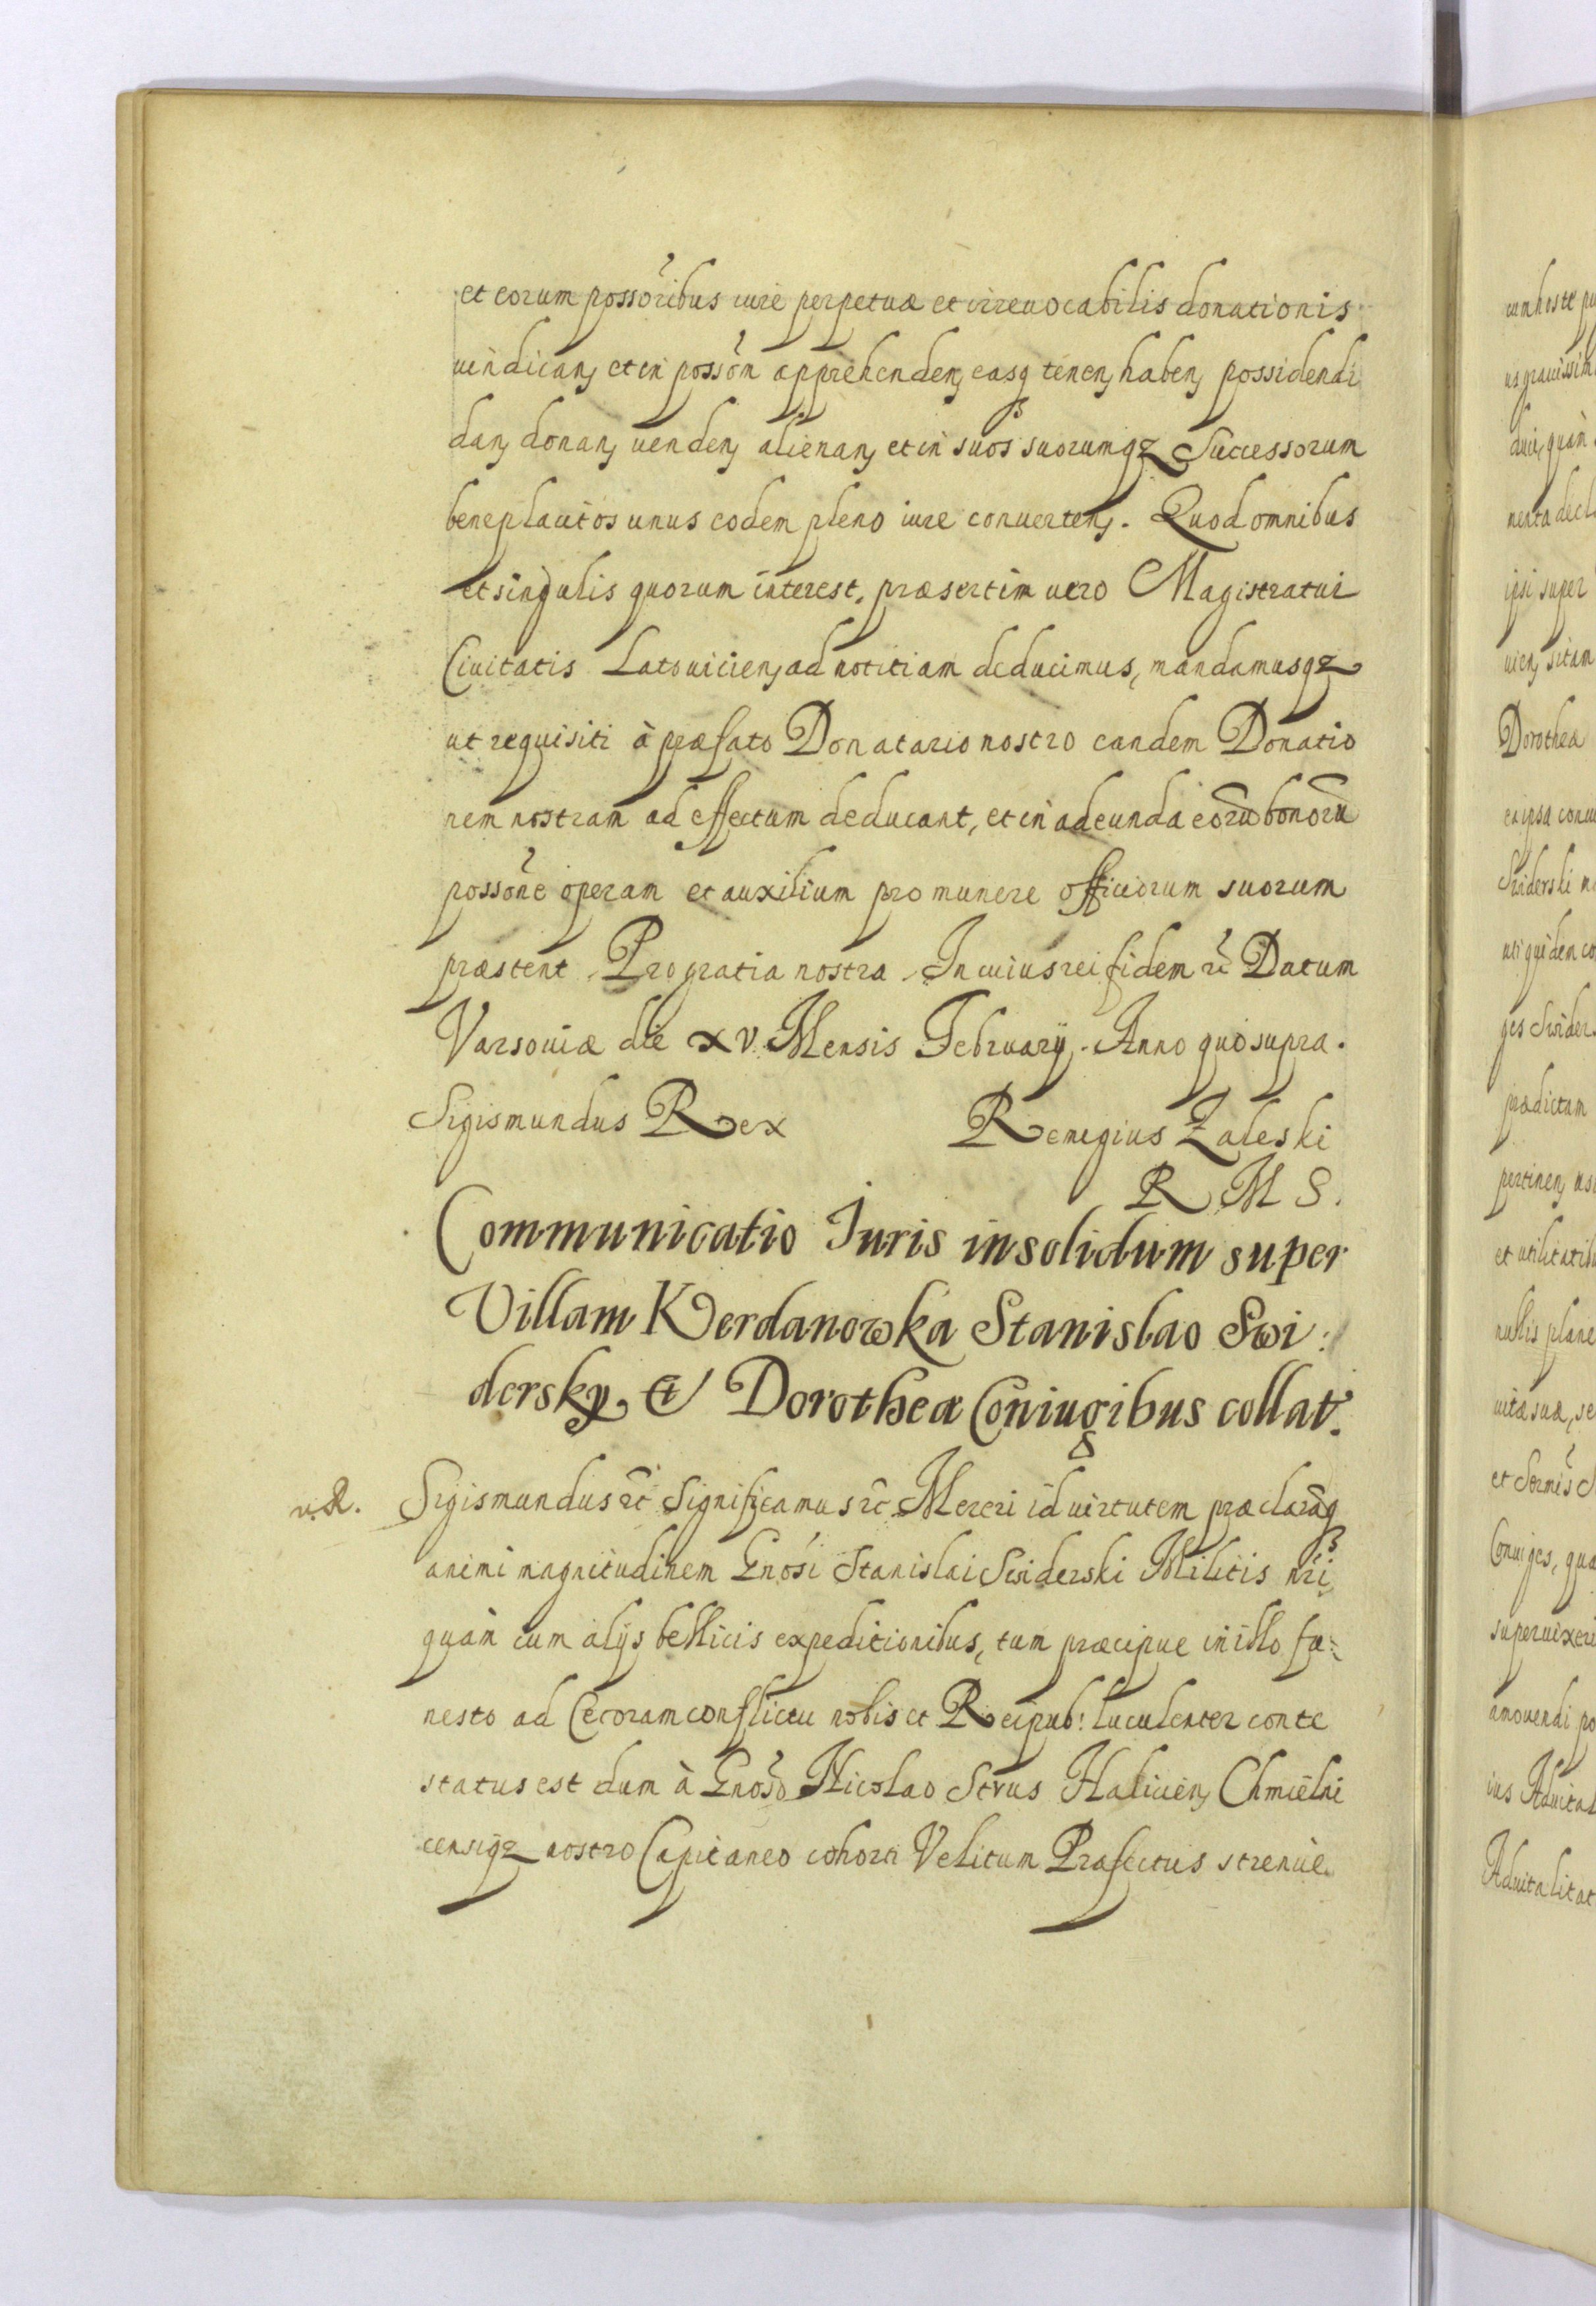 et eorum possoribus iure perpetuæ et irreuocabilis donationis
uindican, et in posson apprehenden, easq tenen, haben, possidendi
dan, donan, uenden, alienan, et in suos suorumqz Successorum
beneplacitos unus eodem pleno iure conuerten,. Quod omnibus
et singulis quorum interest, præsertim uero Magistratui
Ciuitatis Latouicien, ad notitiam deducimus, mandamusqz
ut requisiti à præfato Donatario nostro eandem Donatio
nem nostram ad effectum deducant, et in adeunda eorū bonorū
possone operam et auxilium pro munere officiorum suorum
præstent. Pro gratia nostra. In cuius rei fidem rc Datum
Varsouiæ die xv. Mensis February. Anno quo supra.
Sigismundus Rex Remigius Zaleski
R M S.
Communicatio Juris in solidum super
Villam Kerdanowka Stanislao Swi:
dersky & Dorotheæ Coniugibus collat.
Sigismundus rc Significamus rc Mereri id uirtutem præclarāq
animi magnitudinem Gnosi Stanislai Swiderski Militis nri,
quàm cum alijs bellicis expeditionibus, tum præcipue in illo fu:
nesto ad Cecoram conflictu nobis et Reipub: luculenter conte
status est dum à Gnoso Nicolao Strus Halicien, Chmielni
censiqz nostro Capitaneo cohorti Velitum Præfectus strenuè
cum hoste
duci, quàm
ipsi super
uien, sitam
Dorothea
ex ipsa
Swiderski
uti quidem
ges Swider
prædictam
pertinen,
et utilitatib
nullis plane
uitæ suæ, se
Coniuges, quæ
superuixeri
amouendi po
ius Aduital
Aduitalitat